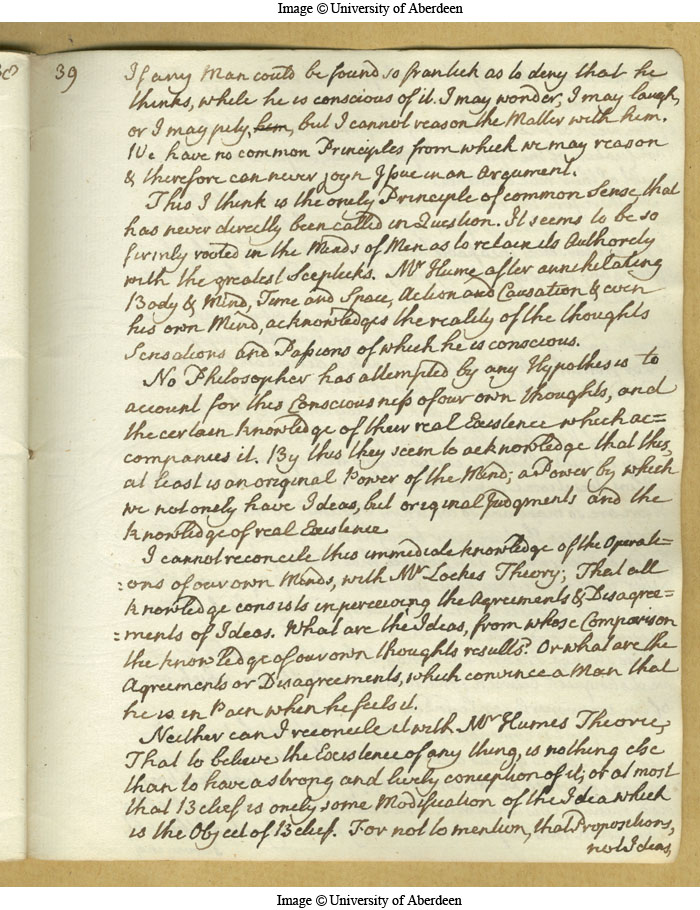 Image © University of Aberdeen
39
If any Man could be found so frantick as to deny that he
thinks, while he is conscious of it. I may wonder, I may laugh,
or I may pity, him, but I cannot reason the Matter with him.
We have no common Principles from which we may reason
& therefore can never joyn Issue in an Argument.
This I think is the onely Principle of common Sense that
has never directly been called in Question. It seems to be so
firmly rooted in the Minds of Men as to retain its Authority
with the greatest Scepticks. Mr Hume after annihilating
Body & Mind, Time and Space, Action and Causation & even
his own Mind, acknowledges the reality of the thoughts
Sensations and Passions of which he is conscious.
No Philosopher has attempted by any Hypothesis to
account for this Consciousness of our own thoughts, and
the certain knowledge of their real Existence which ac=
companies it. By this they seem to acknowledge that this,
at least is an original Power of the Mind; a Power by which
we not onely have Ideas, but original Judgments and the
knowledge of real Existence
I cannot reconcile this immediate knowledge of the Operati=
=ons of our own Minds, with Mr Lockes Theory; That all
knowledge consists in perceiving the Agreements & Disagree=
=ments of Ideas. What are the Ideas, from whose Comparison
the knowledge of our own thoughts results? Or what are the
Agreements or Disagreements, which convince a Man that
he is in Pain when he feels it.
Neither can I reconcile it with Mr Humes Theorie,
That to believe the Existence of any thing, is nothing else
than to have a strong and lively conception of it; or at most
that Belief is onely some Modification of the Idea which
is the Object of Belief. For not to mention, that Propositions,
not Ideas,
Image © University of Aberdeen